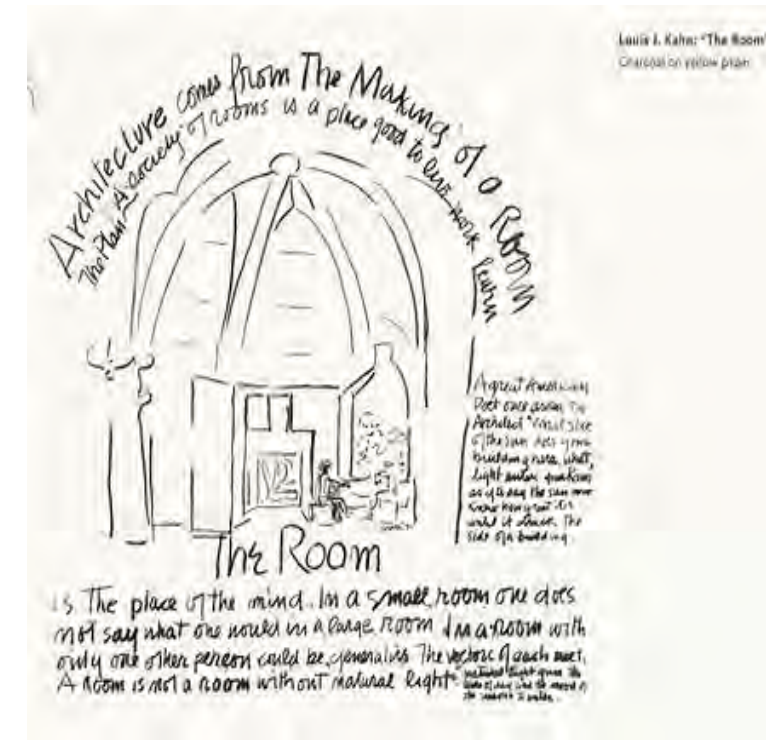 Louis I. Kahn: "The Room"
Charcoal on yellow
Architecture comes from The Making of a Room
The Plan A society of rooms is a place good to live work learn
A great American
Poet once asked The
Architect
of the sun does your
building have, what
light enters your Room
as if to say the sun never
knew how great it is
until it struck the
side of a building.
The Room
is The place of the mind. In a small room one does
not say what one would in a large room In a room with
only one other person could be generative The vectors of each meet.
A Room is not a room without natural light
natural light gives the
time of day and the mood of
the seasons to enter.